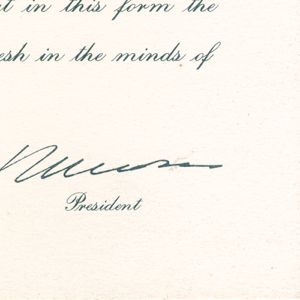 in this form the
in the minds of
President